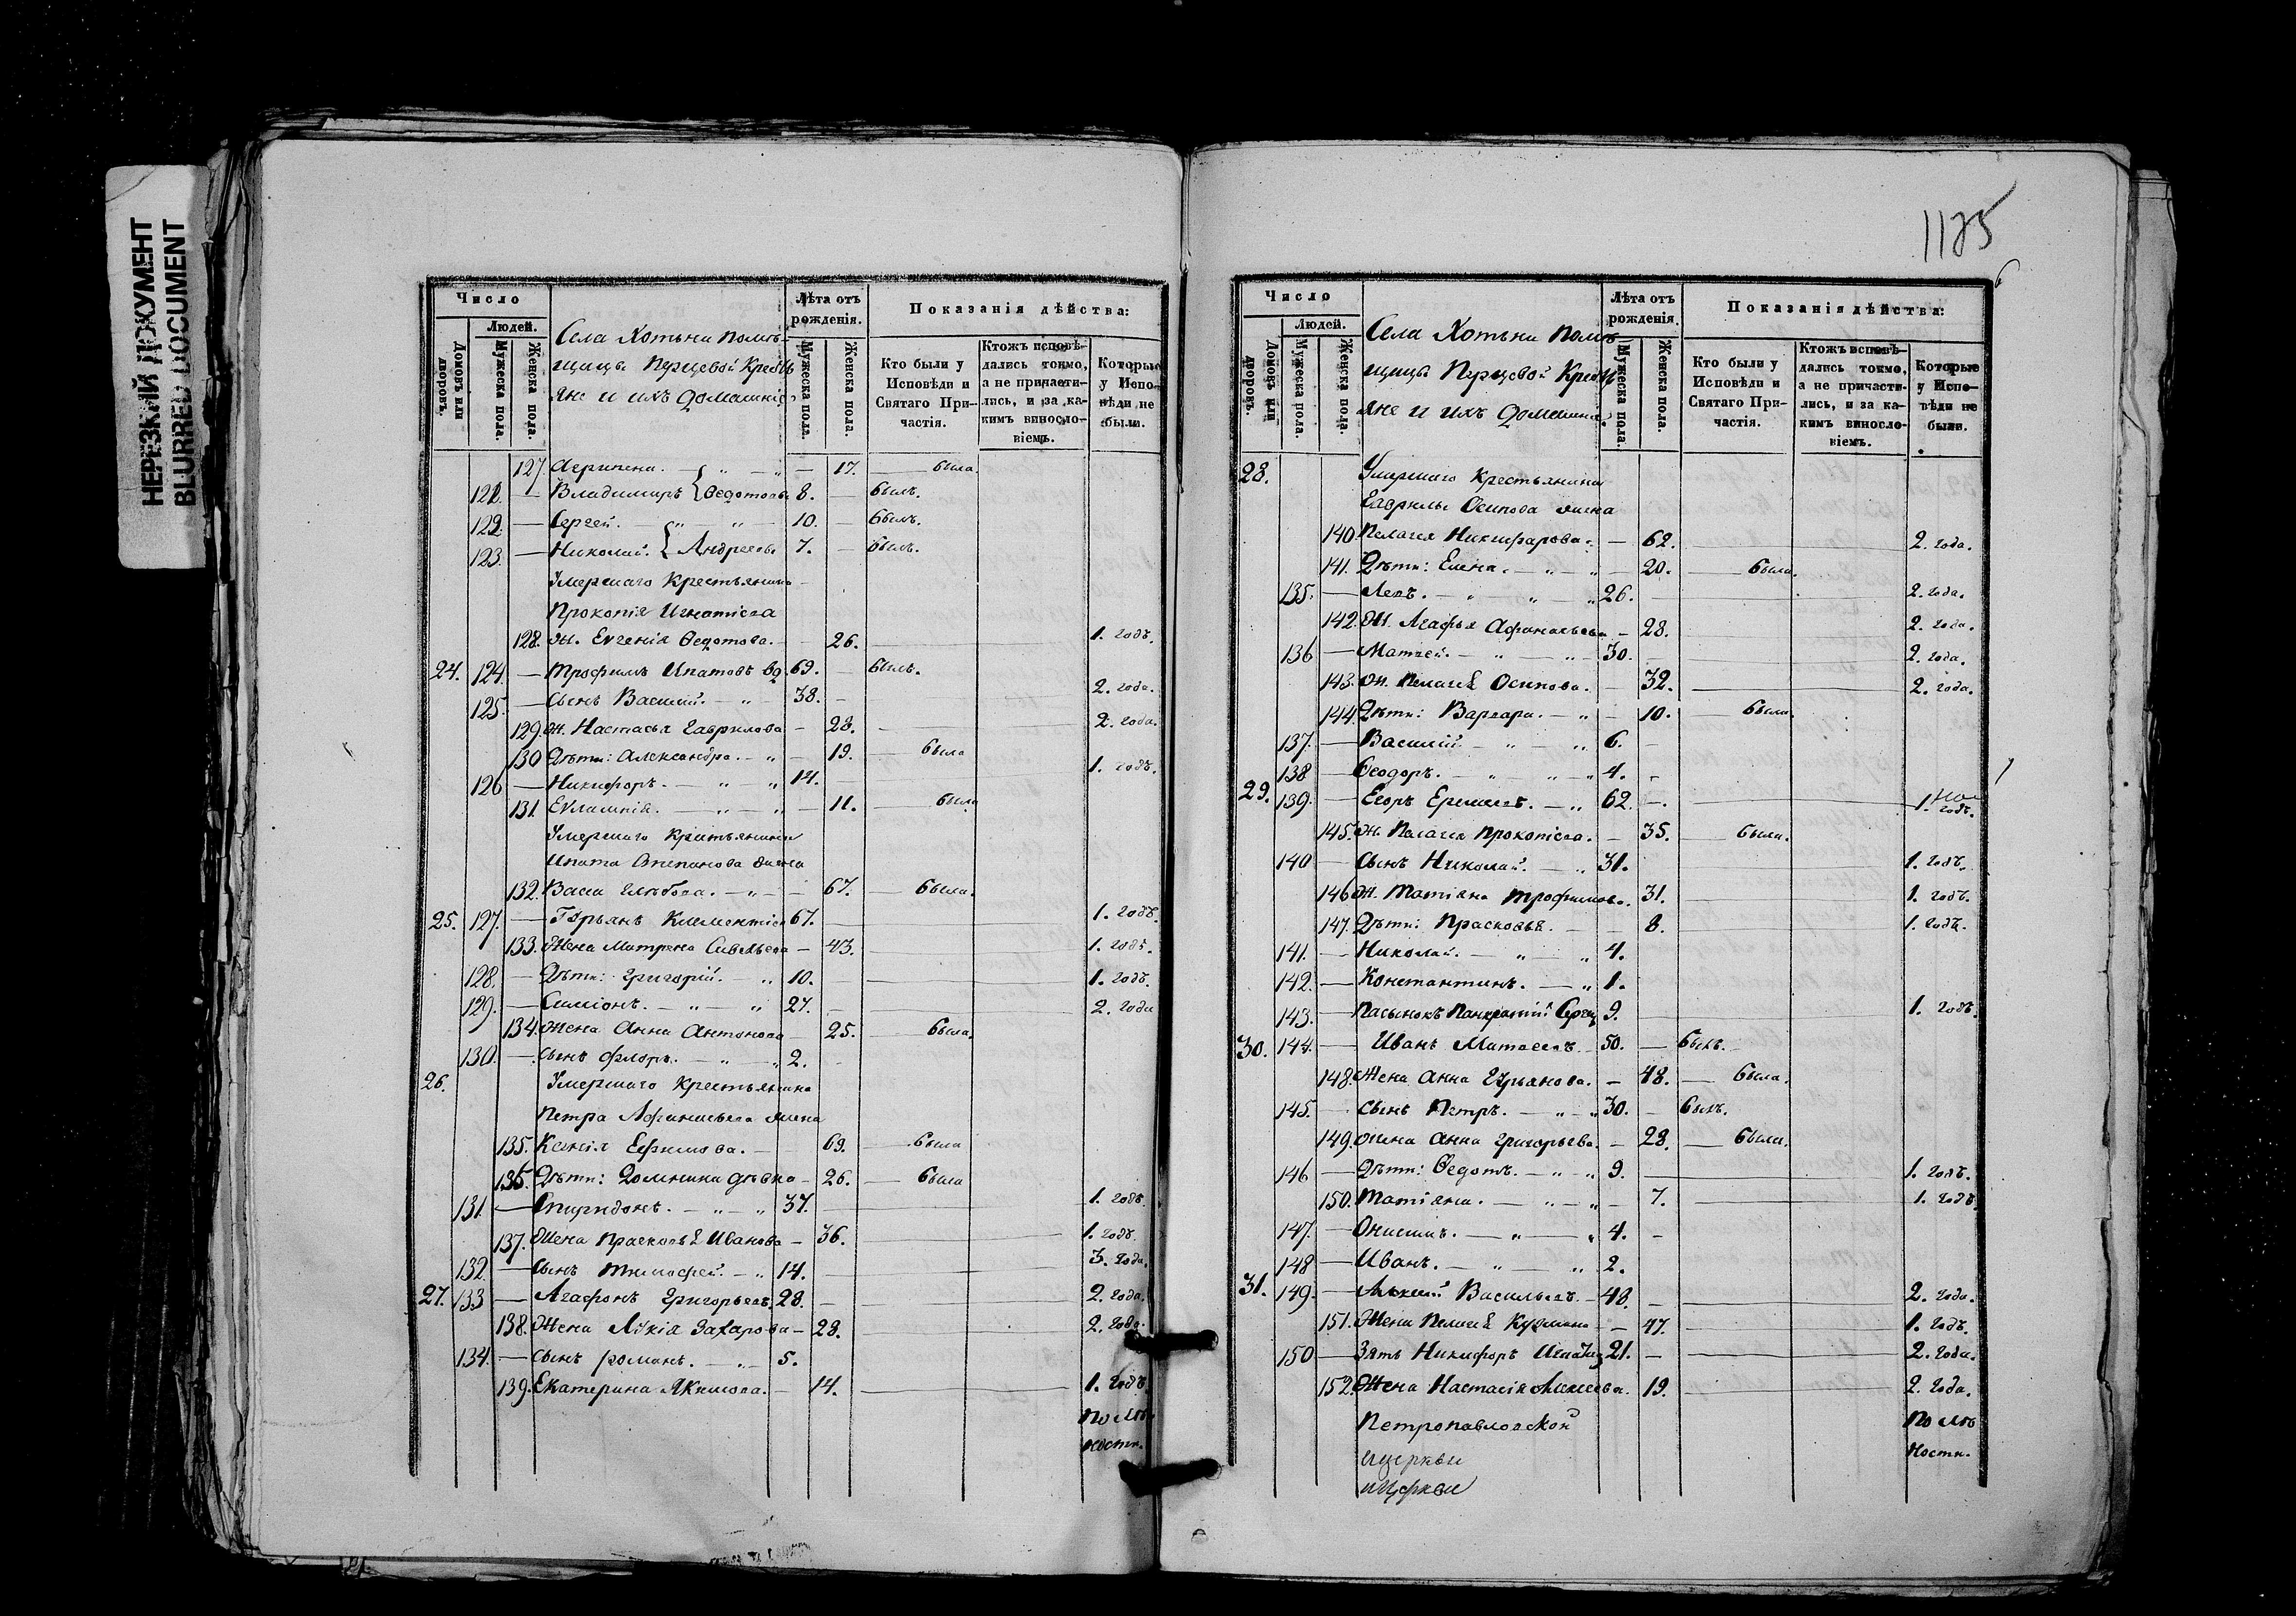 НЕРЕЗКИЙ ДОКУМЕНТ
BLURRED DOCUMENT
Число
Людей.
Домовъ или дворовъ.
Мужеска пола.
Женска пола.
Села Хотьни помѣ-
щицы Перцевой Кресть
яне и ихъ домашніе
Лѣта отъ рожденія.
Мужеска пола.
Женска пола.
Показанія дѣйства:
Кто были у Исповѣди и Святаго При-
частія.
Ктожъ исповѣ-
дались токмо,
а не причасти-
лись, и за ка-
кимъ виносло-
віемъ.
Которые у Испо-
вѣди не были.
127. Агрипена. — „ — „ — 17. — была.
121. — Владимиръ { Ѳедотовы 8. — былъ.
122. — Сергей. — „ — „ — 10. — былъ.
123. — Николай. { Андреевы 7. — былъ.
Умершаго Крестьянина
Прокопія Игнатіева
128. ж. Евгенія Ѳедотова. — 26. — 1. годъ.
24. 124. — Трофимъ Ипатовъ вд. 69. — былъ.
125. — Сынъ Василій. — „ — 38. — 2. года.
129. ж. Настасья Гаврилова — 28. — 2. года.
130 Дѣти: Александра. — „ — 19. — была
126 — Никифоръ. — „ — „ 14. — 1. годъ.
131. Евлампія. — „ — „ — 11. — была
Умершаго Крестьянина
Ипата Степанова жена
132. Васса Глѣбова. — „ — 67. — была.
25. 127. — Гурьянъ Климентіев 67. — 1. годъ.
133. Жена Матрена Савельева — 43. — 1. годъ.
128. — Дѣти: Григорій. — „ 10. — 1. годъ.
129. — Симіонъ. — „ — „ 27. — 2. года
134. Жена Анна Антонова — 25. — была.
130. — Сынъ Флоръ. — „ — „ 2. —
26. Умершаго Крестьянина
Петра Афанасьева жена
135. Ксенія Ефимова. — 69. — была
136. Дѣти: Домнина дѣвка — 26. — была
131. — Спиридонъ. — „ — „ 37. — 1. годъ.
137. Жена Прасковья Иванова — 36. — 1. годъ.
132. — Сынъ Тимофей. — „ 14. — 3. года.
27. 133 — Агафонъ Григорьевъ. 28. — 2. года.
138. Жена Лукія Захарова — 28. — 2. года.
134. — Сынъ Романъ. — „ — 5.
139. Екатерина Якимова. — 14. — 1. годъ.
По лѣ-
ности.
1125
6
Число
Людей.
Домовъ или дворовъ.
Мужеска пола.
Женска пола.
Села Хотьни помѣ
щицы Перцевой Кресть
яне и ихъ домашніе
Лѣта отъ рожденія.
Мужеска пола.
Женска пола.
Показанія дѣйства:
Кто были у Исповѣди и Святаго При-
частія.
Ктожъ исповѣ-
дались токмо,
а не причасти-
лись, и за ка-
кимъ виносло-
віемъ.
Которые у Испо-
вѣди не были.
28. Умершаго Крестьянина
Гаврилы Осипова жена
140 Пелагея Никифорова. — 62. — 2. года.
141. Дѣти: Елена. — „ — „ — 20. — была.
135. — Левъ. — „ — „ — „ 26. — 2. года.
142. ж. Агафья Афанасьева — 28. — 2. года.
136 — Матвей. — „ — „ — 30. — 2. года.
143. ж. Пелагея Осипова. — 32. — 2. года.
144. Дѣти: Варвара. — „ — 10. — была.
137. — Василій — „ — „ 6. —
138 — Ѳеодоръ. — „ — „ 4. —
29. 139. — Егоръ Еремеевъ. — „ 62. — 1. годъ.
145. ж. Пелагея Прокопіева. — 35. — была.
140 — Сынъ Николай. — „ 31. — 1. годъ.
146 ж. Татіяна Трофимова. 31. — 1. годъ.
147. Дѣти: Прасковья. — 8. — 1. годъ.
141. — Николай. — „ — „ 4.
142. — Константинъ. — „ 1.
143. — Пасынокъ Панкратій Сергеев 9. — 1. годъ.
30. 144. — Иванъ Матвеевъ. 50. — былъ.
148. Жена Анна Гурьянова. — 48. — была.
145. — Сынъ Петръ. — „ — „ 30. — былъ.
149. Жена Анна Григорьева. — 28. — была.
146 — Дѣти: Ѳедотъ. — „ — „ 9. — 1. годъ.
150. Татіяна. — „ — „ — 7. — 1. годъ
147. — Онисимъ. — „ — „ 4. —
148 — Иванъ. — „ — „ 2.
31. 149. — Алексій Васильевъ. — 48. — 2. года.
151. Жена Пелагея Кузмина — 47. — 1. годъ.
150 — Зять Никифоръ 21. — 2. года.
152. Жена Настасія Алексеева. 19. — 2. года.
Петропавловской
церкви
По лѣ
ности.